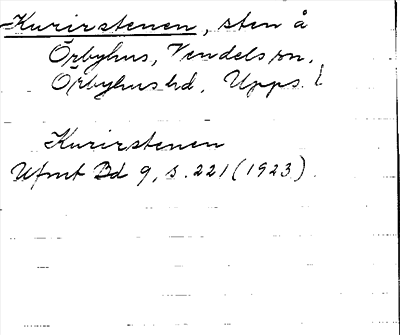 Kurirstenen, sten å
Örbyhus, Vendels sn.
Örbyhus hd, Upps. l
Kurirstenen
Ufmt Bd 9, s. 221 (1923).